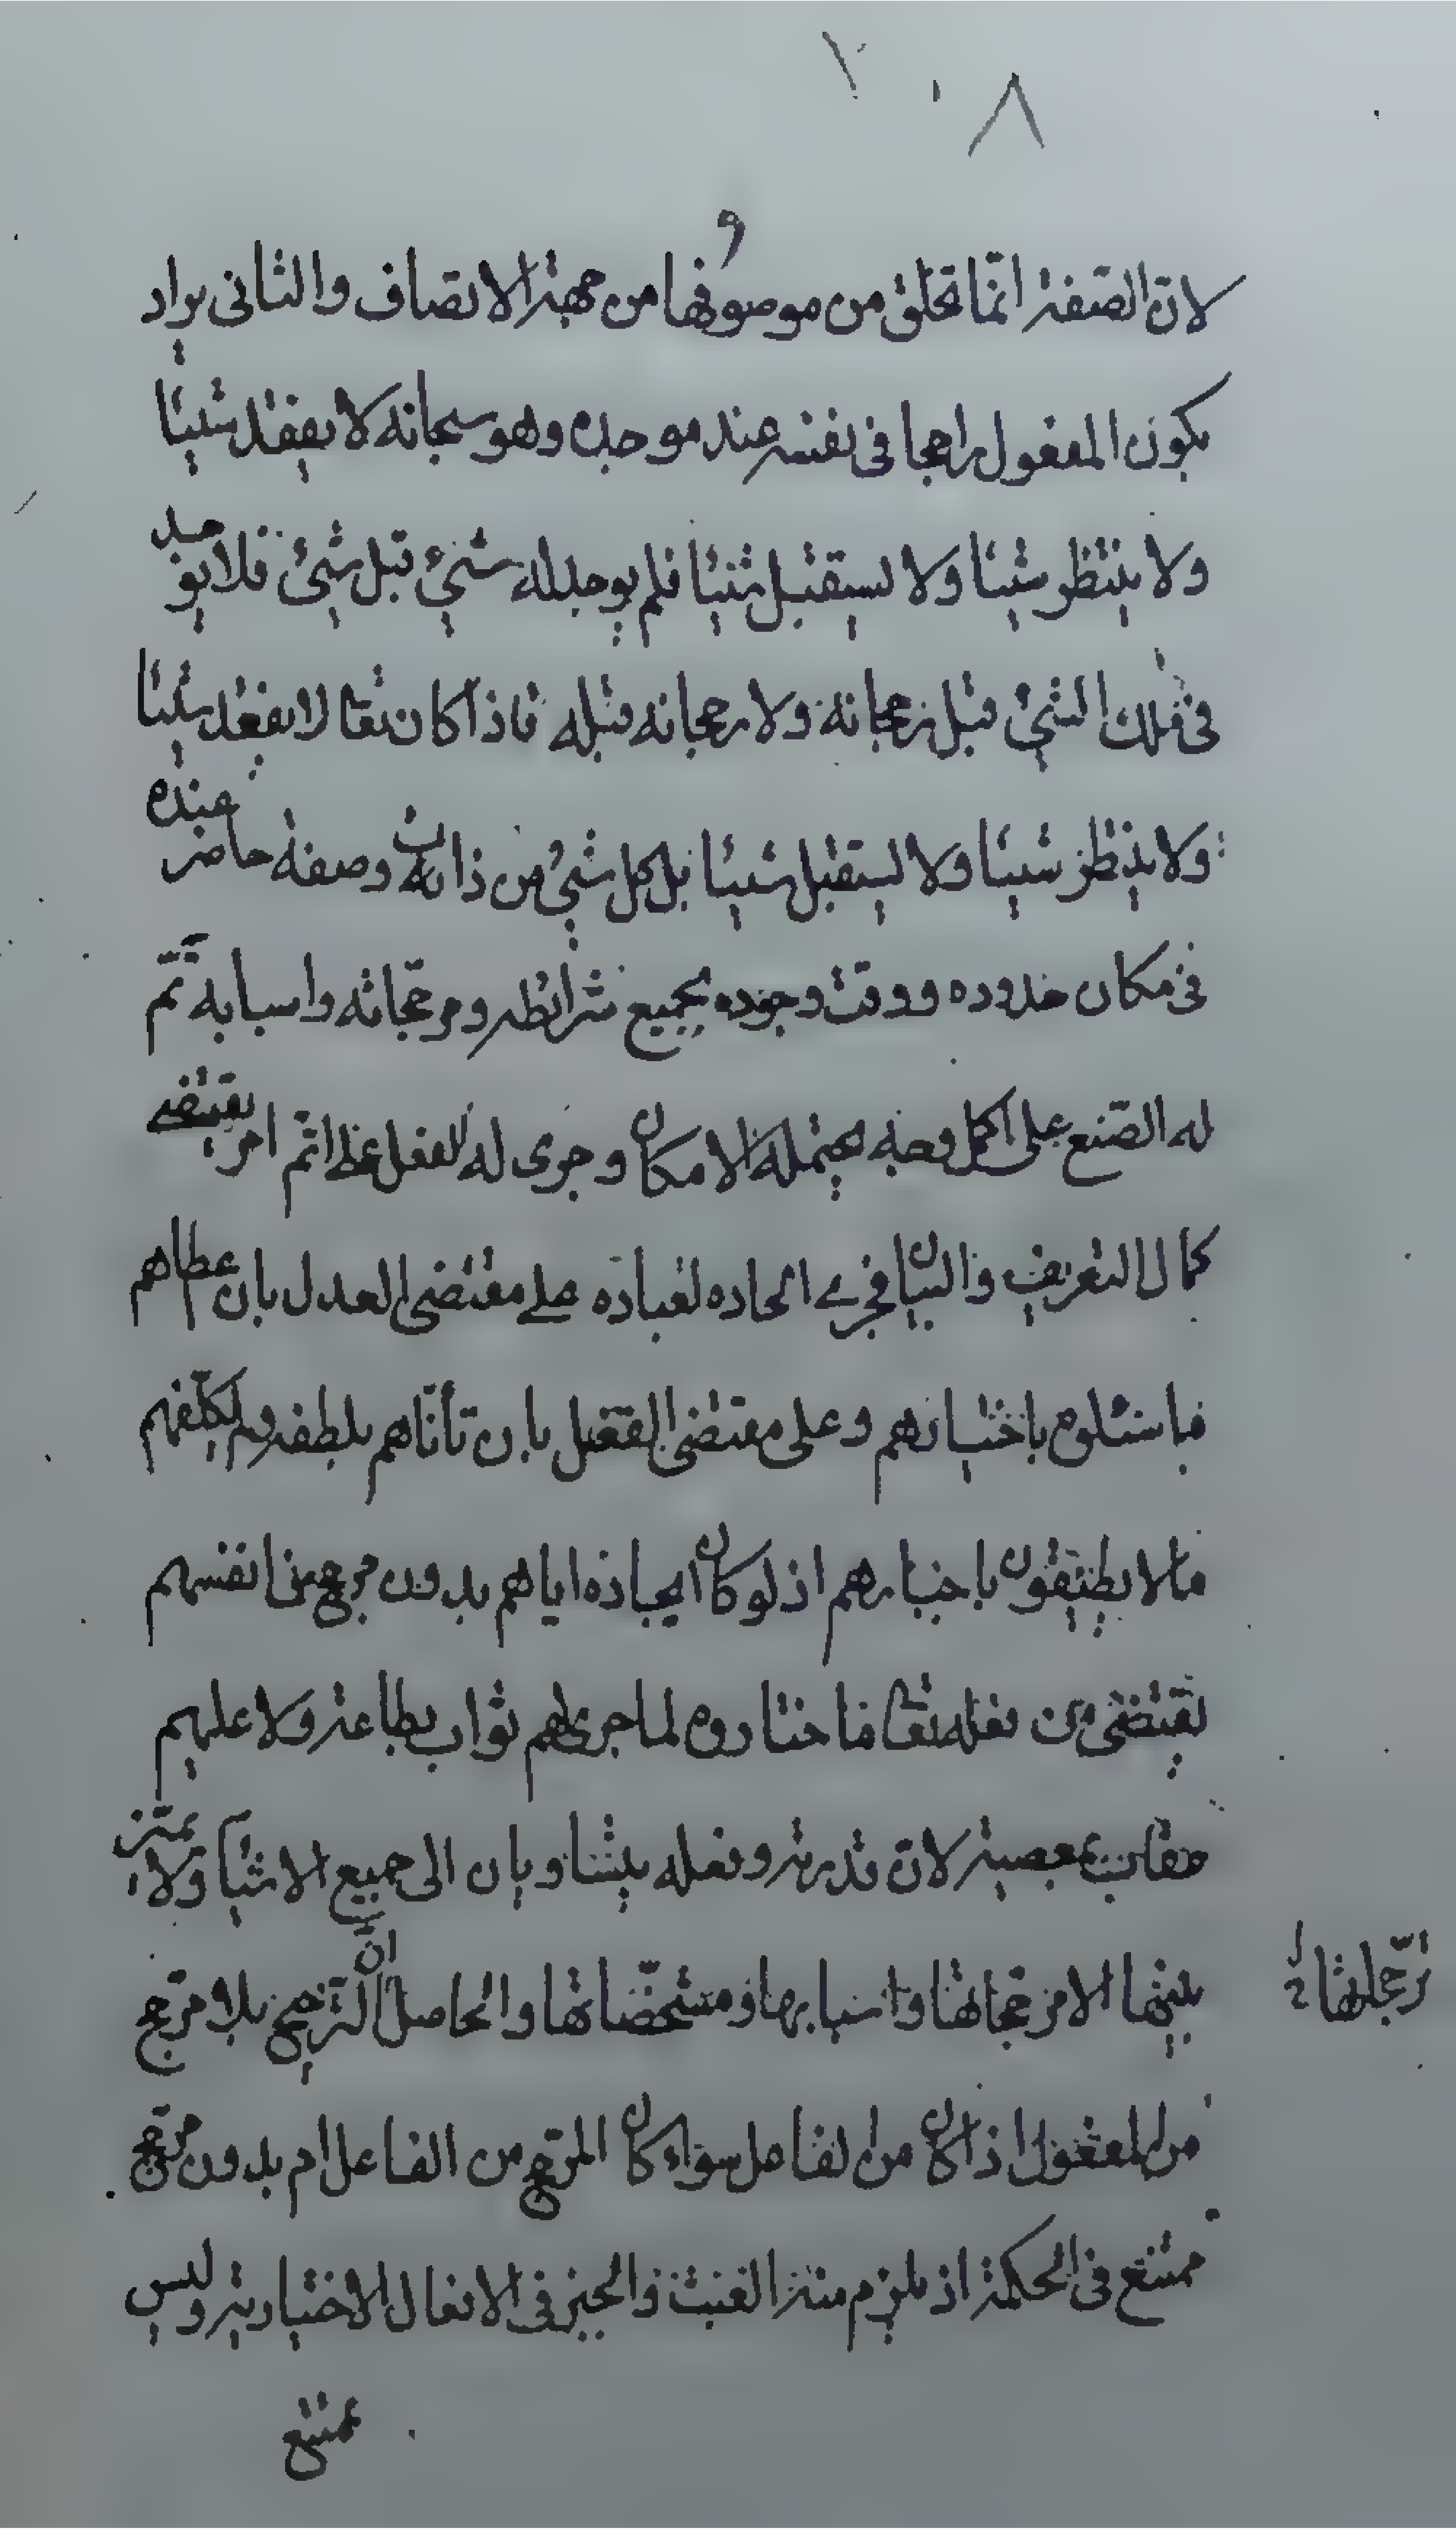 ٢٠٨
لان الصفة انما تخلق من موصوفها من جهة الاتصاف والثانى يراد
و
يكون المفعول راجحا فى نفسه عند موجده وهو سبحانه لا يفقد شيئا
ولا ينتظر شيئا ولا يستقبل شيئا فلم يوجد له شئ قبل شئ فلا يوجد
فى ملك الشئ قبل رجحانه ولا رجحانه قبله فاذا كان تعالى لا يفقد شيئا
ولا ينتظر شيئا ولا يستقبل شيئا بل كل شئ من ذات وصفة حاضر عنده
فى مكان حدوده ووقت وجوده بجميع شرائطه ومرجحاته واسبابه تم
له الصنع على اكمل وجه يحتمله الامكان وجرى له الفعل على اتم امر يقتضى
كمال التعريف والبيان فجرى ايجاده لعباده على مقتضى العدل بان عطاهم
ما سئلوه باختيارهم وعلى مقتضى الفضل بان تأناهم بلطفه ولم يكلفهم
ما لا يطيقون باختيارهم اذ لو كان ايجاده اياهم بدون مرجح من انفسهم
يقتضى من فعله تعالى ما اختاروه لما جرى لهم ثواب بطاعة ولا عليهم
عقاب بمعصية لان قدرته وفعله يتساويان الى جميع الاشيآء ولا تميز
بينها الا مرجحاتها واسبابها ومشخصاتها والحاصل ان الترجيح بلا مرجح
من المفعول اذا كان من الفاعل سواء كان المرجح من الفاعل ام بدون مرجح
ممتنع فى الحكمة اذ يلزم منه العبث والجبر فى الافعال الاختيارية وليس
بممتنع